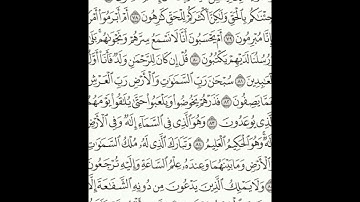 جِئْنَٰكُم بِٱلْحَقِّ وَلَٰكِنَّ أَكْثَرَكُمْ لِلْحَقِّ كَٰرِهُونَ ٧٨ أَمْ أَبْرَمُوٓا۟ أَمْرًا
فَإِنَّا مُبْرِمُونَ ٧٩ أَمْ يَحْسَبُونَ أَنَّا لَا نَسْمَعُ سِرَّهُمْ وَنَجْوَىٰهُم بَلَىٰ
وَرُسُلُنَا لَدَيْهِمْ يَكْتُبُونَ ٨٠ قُلْ إِن كَانَ لِلرَّحْمَٰنِ وَلَدٌ فَأَنَا۠ أَوَّلُ
ٱلْعَٰبِدِينَ ٨١ سُبْحَٰنَ رَبِّ ٱلسَّمَٰوَٰتِ وَٱلْأَرْضِ رَبِّ ٱلْعَرْشِ
عَمَّا يَصِفُونَ ٨٢ فَذَرْهُمْ يَخُوضُوا۟ وَيَلْعَبُوا۟ حَتَّىٰ يُلَٰقُوا۟ يَوْمَهُمُ
ٱلَّذِى يُوعَدُونَ ٨٣ وَهُوَ ٱلَّذِى فِى ٱلسَّمَآءِ إِلَٰهٌ وَفِى ٱلْأَرْضِ
إِلَٰهٌ وَهُوَ ٱلْحَكِيمُ ٱلْعَلِيمُ ٨٤ وَتَبَارَكَ ٱلَّذِى لَهُۥ مُلْكُ ٱلسَّمَٰوَٰتِ
وَٱلْأَرْضِ وَمَا بَيْنَهُمَا وَعِندَهُۥ عِلْمُ ٱلسَّاعَةِ وَإِلَيْهِ تُرْجَعُونَ
٨٥ وَلَا يَمْلِكُ ٱلَّذِينَ يَدْعُونَ مِن دُونِهِ ٱلشَّفَٰعَةَ إِلَّا